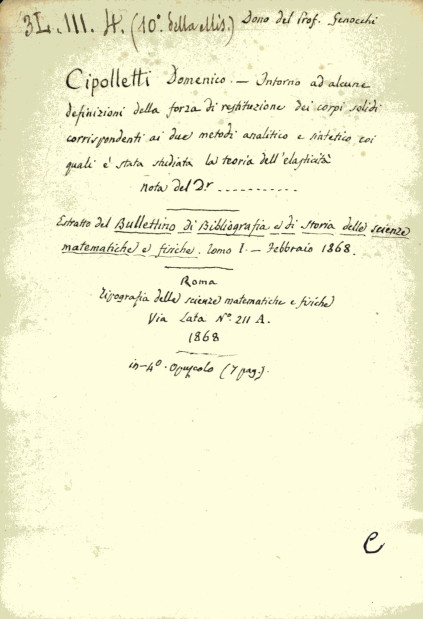 3L. III. 4. (10°. della Mis.) Dono del Prof. Genocchi
Cipolletti Domenico. — Intorno ad alcune
definizioni della forza di restituzione dei corpi solidi
corrispondenti ai due metodi analitico e sintetico coi
quali è stata studiata la teoria dell'elasticità
nota del D.r ...........
Estratto del Bullettino di Bibliografia e di Storia delle scienze
matematiche e fisiche. Tomo I. — Febbraio 1868.
Roma
Tipografia delle scienze matematiche e fisiche
Via Lata N.° 211 A.
1868
in-4° opuscolo (7 pag.).
C